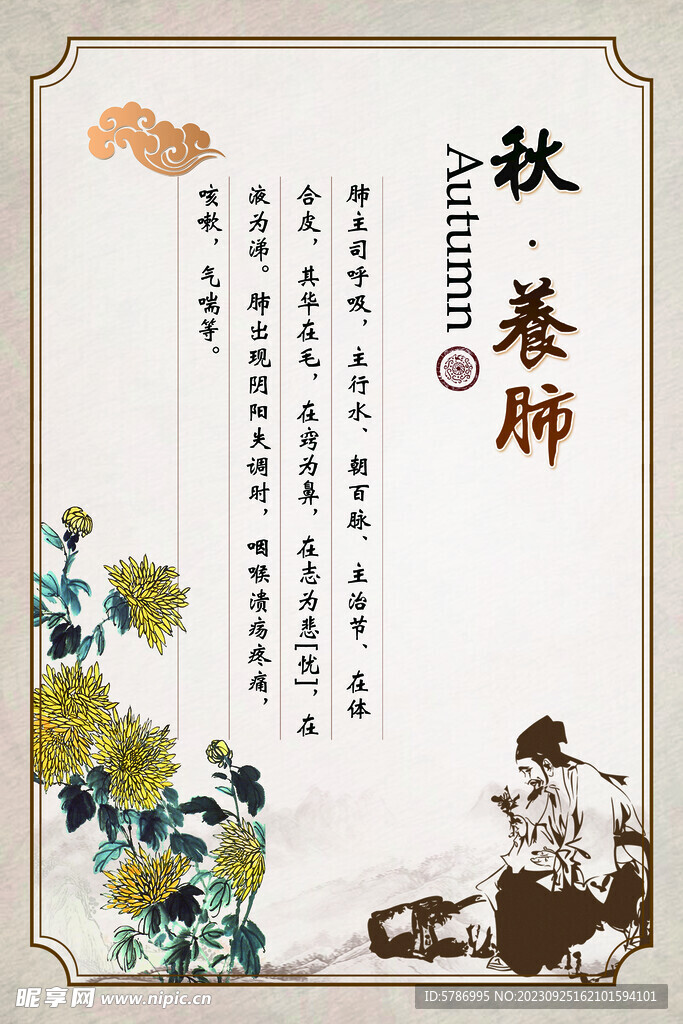 秋·養肺
Autumn
肺主司呼吸，主行水、朝百脉、主治节、在体
合皮，其华在毛，在窍为鼻，在志为悲[忧]，在
液为涕。肺出现阴阳失调时，咽喉溃疡疼痛，
咳嗽，气喘等。
昵享网 www.nipic.cn
ID:5786995 NO:20230925162101594101